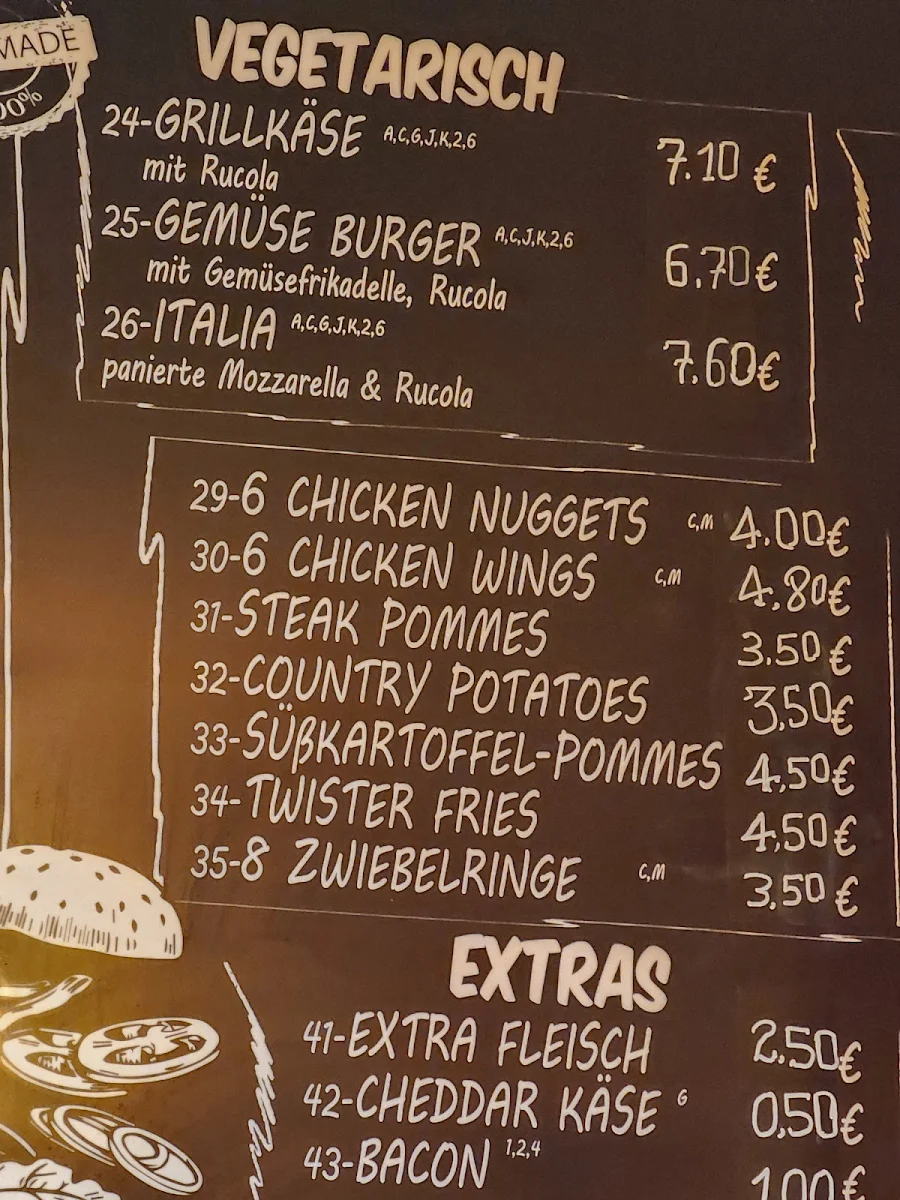 MADE
00%
VEGETARISCH
24-GRILLKÄSE A,C,G,J,K,2,6 7.10 €
mit Rucola
25-GEMÜSE BURGER A,C,J,K,2,6 6.70€
mit Gemüsefrikadelle, Rucola
26-ITALIA A,C,G,J,K,2,6 7.60€
panierte Mozzarella & Rucola
29-6 CHICKEN NUGGETS C,M 4.00€
30-6 CHICKEN WINGS C,M 4.80€
31-STEAK POMMES 3.50€
32-COUNTRY POTATOES 3,50€
33-SÜßKARTOFFEL-POMMES 4,50€
34-TWISTER FRIES 4,50€
35-8 ZWIEBELRINGE C,M 3,50€
EXTRAS
41-EXTRA FLEISCH 2.50€
42-CHEDDAR KÄSE G 0,50€
43-BACON 1,2,4 1,00€